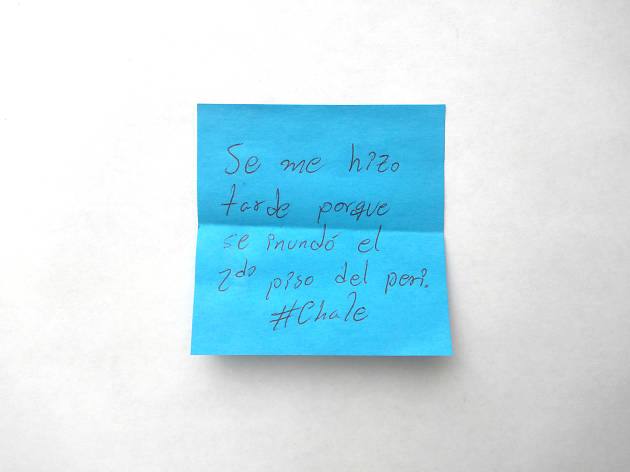 Se me hizo
tarde porque
se inundó el
2do piso del peri.
#Chale